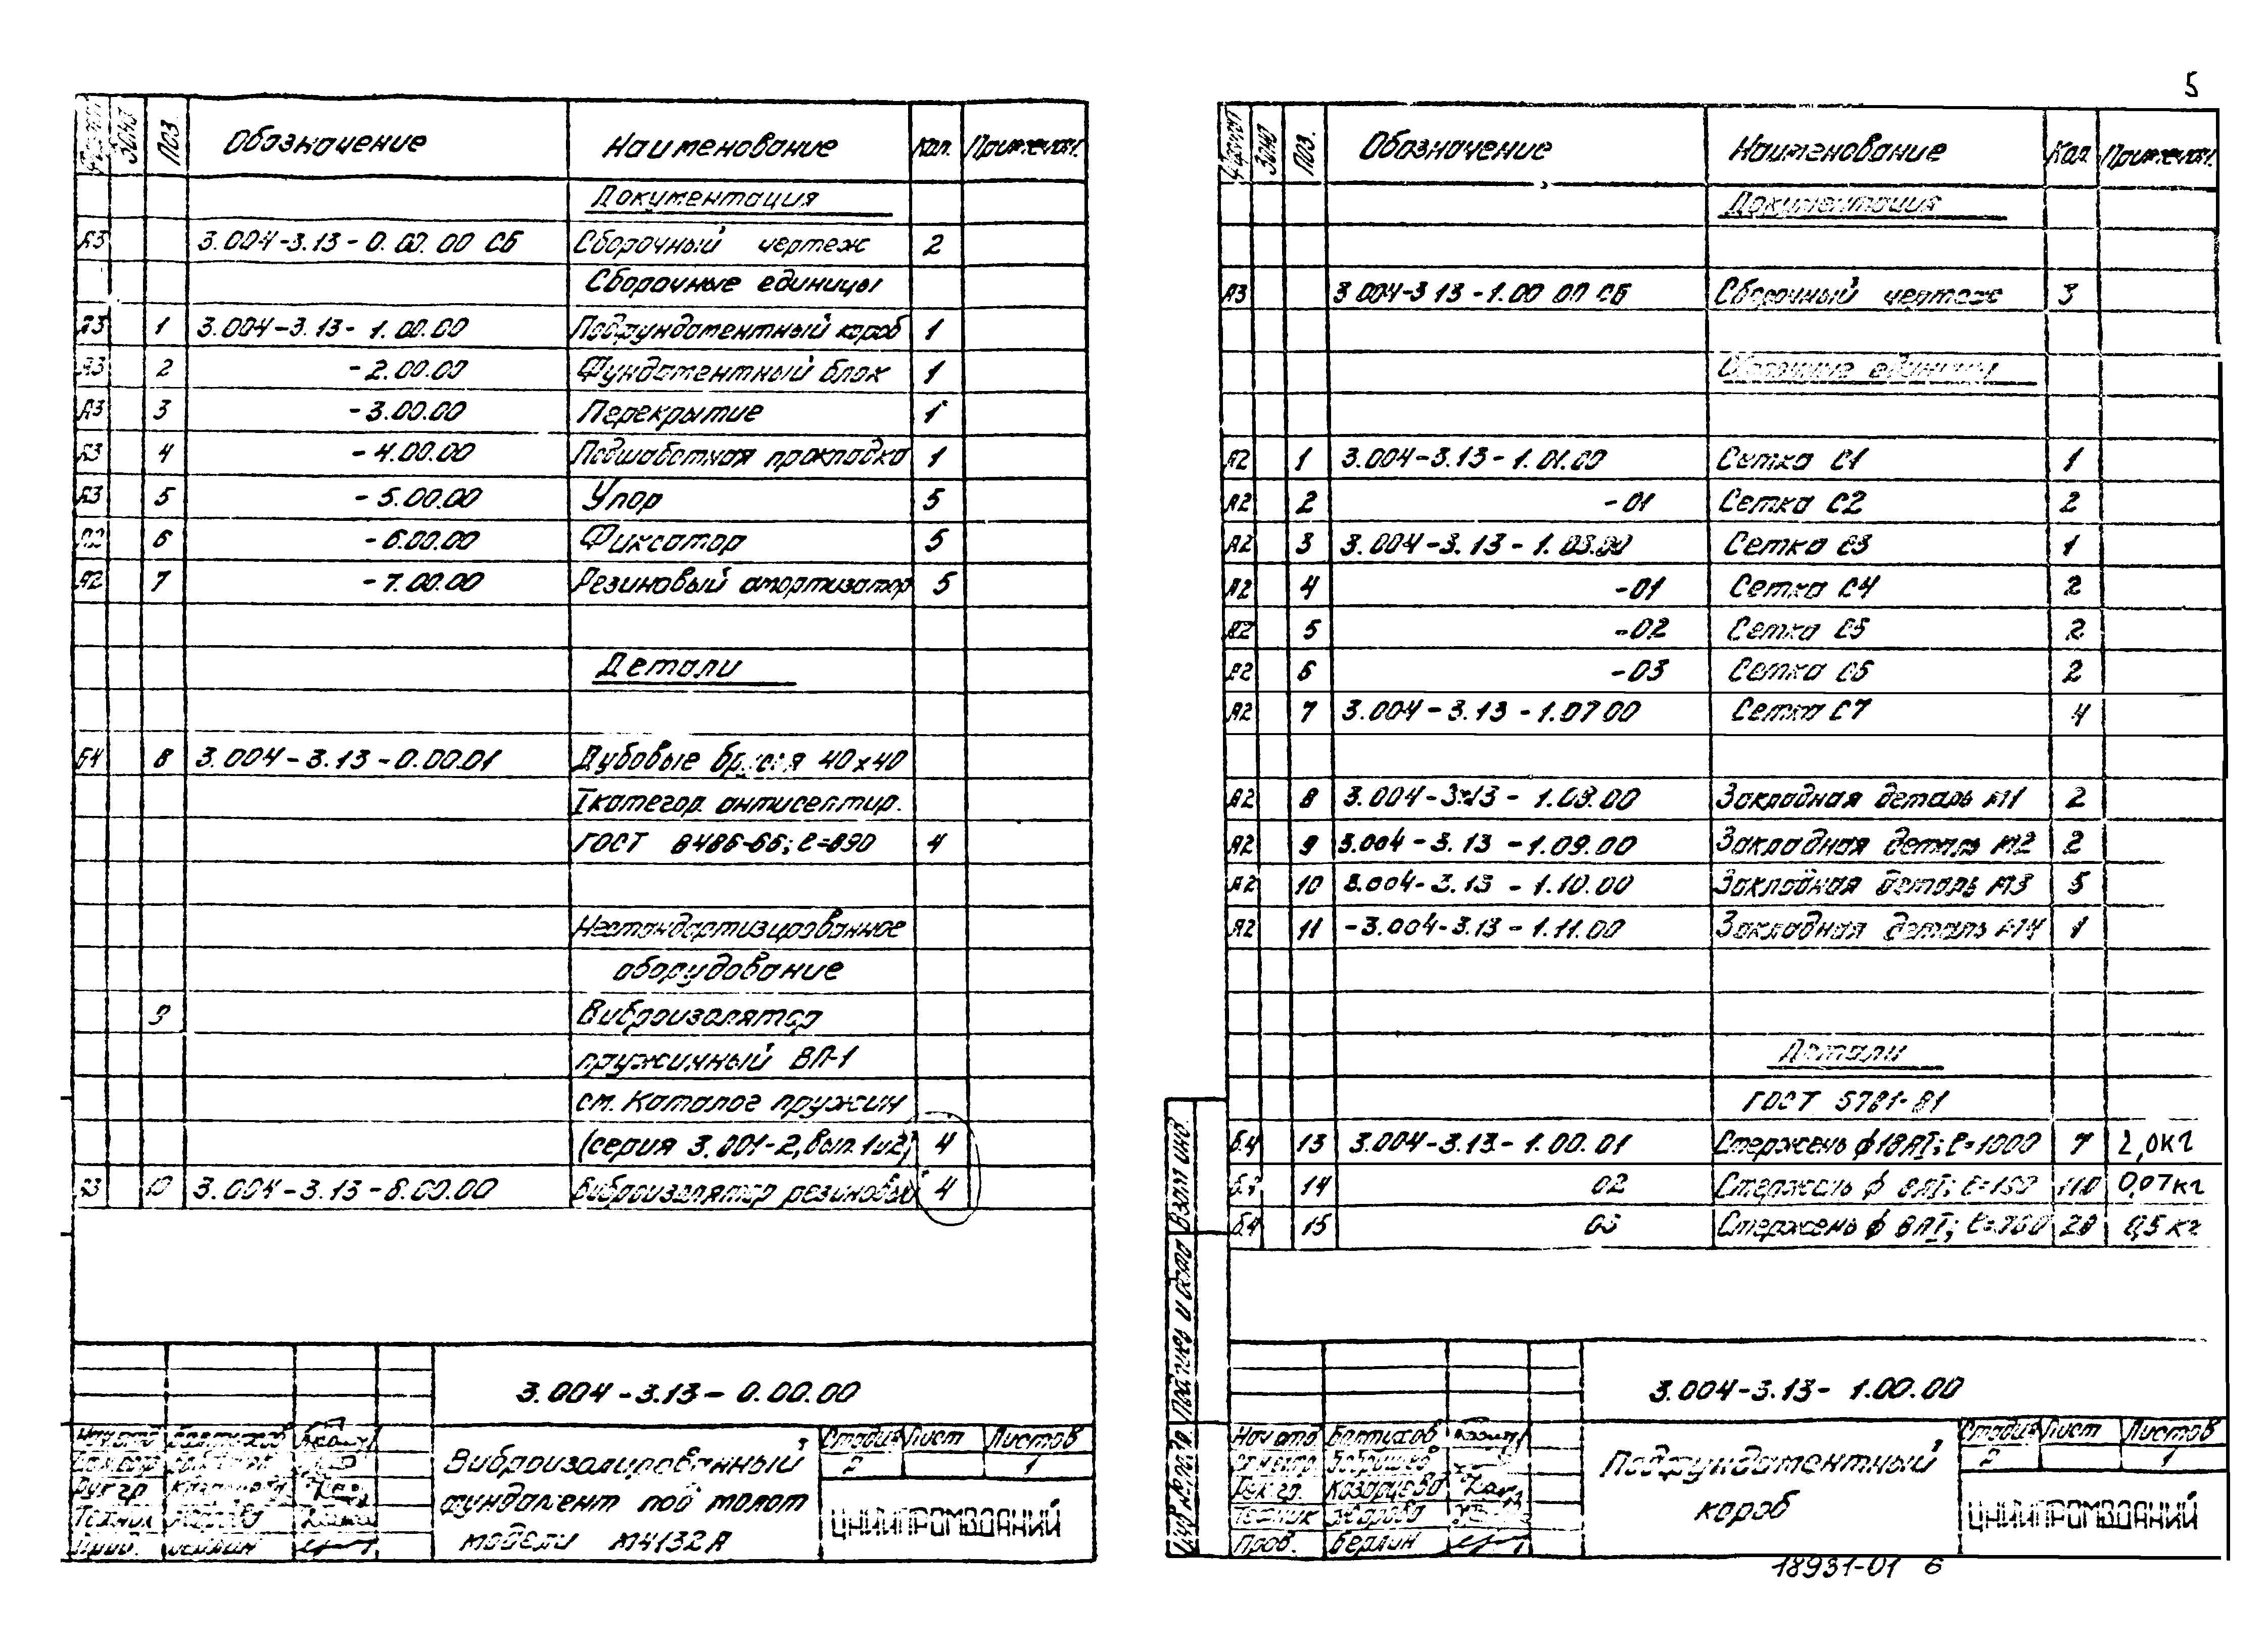 5
Формат Зона Поз. Обозначение Наименование Кол. Примечан.
Документация
А3 3.004-3.13-0.00.00 СБ Сборочный чертеж 2
Сборочные единицы
А3 1 3.004-3.13-1.00.00 Подфундаментный короб 1
А3 2 -2.00.00 Фундаментный блок 1
А3 3 -3.00.00 Перекрытие 1
А3 4 -4.00.00 Подшаботная прокладка 1
А3 5 -5.00.00 Упор 5
6 -6.00.00 Фиксатор 5
А2 7 -7.00.00 Резиновый амортизатор 5
Детали
Б4 8 3.004-3.13-0.00.01 Дубовые брусья 40х40
I категор. антисептир.
ГОСТ 8486-66; ℓ=890 4
Нестандартизированное
оборудование
9 Виброизолятор
пружинный ВП-1
см. Каталог пружин
(серия 3.001-2, вып. 1и2) 4
А3 10 3.004-3.13-8.00.00 Виброизолятор резиновый 4
3.004-3.13-0.00.00
Нач.отд
Рук.гр
Техник
Пров. Берлин
Виброизолированный
фундамент под молот
модели М4132А
Стадия Лист Листов
2 1
ЦНИИПРОМЗДАНИЙ
Формат Зона Поз. Обозначение Наименование Кол. Примечан.
Документация
А3 3.004-3.13-1.00.00 СБ Сборочный чертеж 3
Сборочные единицы
А2 1 3.004-3.13-1.01.00 Сетка С1 1
А2 2 -01 Сетка С2 2
А2 3 3.004-3.13-1.03.00 Сетка С3 1
А2 4 -01 Сетка С4 2
А2 5 -02 Сетка С5 2
А2 6 -03 Сетка С6 2
А2 7 3.004-3.13-1.07.00 Сетка С7 4
А2 8 3.004-3.13-1.08.00 Закладная деталь М1 2
А2 9 3.004-3.13-1.09.00 Закладная деталь М2 2
А2 10 3.004-3.13-1.10.00 Закладная деталь М3 5
А2 11 -3.004-3.13-1.11.00 Закладная деталь М4 1
Детали
ГОСТ 5781-81
Б.4 13 3.004-3.13-1.00.01 Стержень ф18АI; ℓ=1000 7 2,0кг
Б.4 14 02 Стержень ф 8АI; ℓ=150 110 0,07кг
Б.4 15 03 Стержень ф 8АI; ℓ=760 28 0,5 кг
Инв № подл Подпись и дата Взам инв.
3.004-3.13-1.00.00
Нач отд
Рук.гр. Казарцева
Техник
Пров. Берлин
Подфундаментный
короб
Стадия Лист Листов
2 1
ЦНИИПРОМЗДАНИЙ
18931-01 6